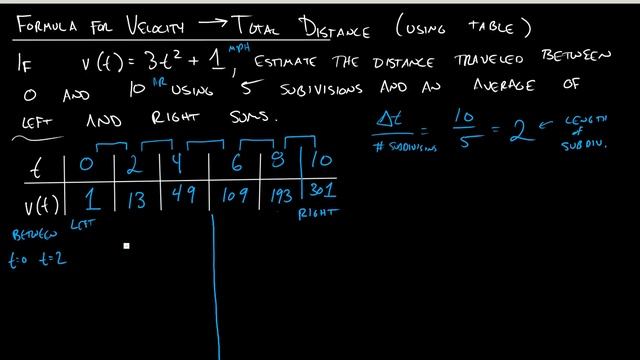 FORMULA FOR VELOCITY → TOTAL DISTANCE (USING TABLE)
IF v(t) = 3t² + 1 MPH, ESTIMATE THE DISTANCE TRAVELED BETWEEN
0 AND 10 HR USING 5 SUBDIVISIONS AND AN AVERAGE OF
LEFT AND RIGHT SUMS.
Δt / # SUBDIVISIONS = 10 / 5 = 2 ← LENGTH OF SUBDIV.
t 0 2 4 6 8 10
v(t) 1 13 49 109 193 301
LEFT RIGHT
BETWEEN
t=0 t=2